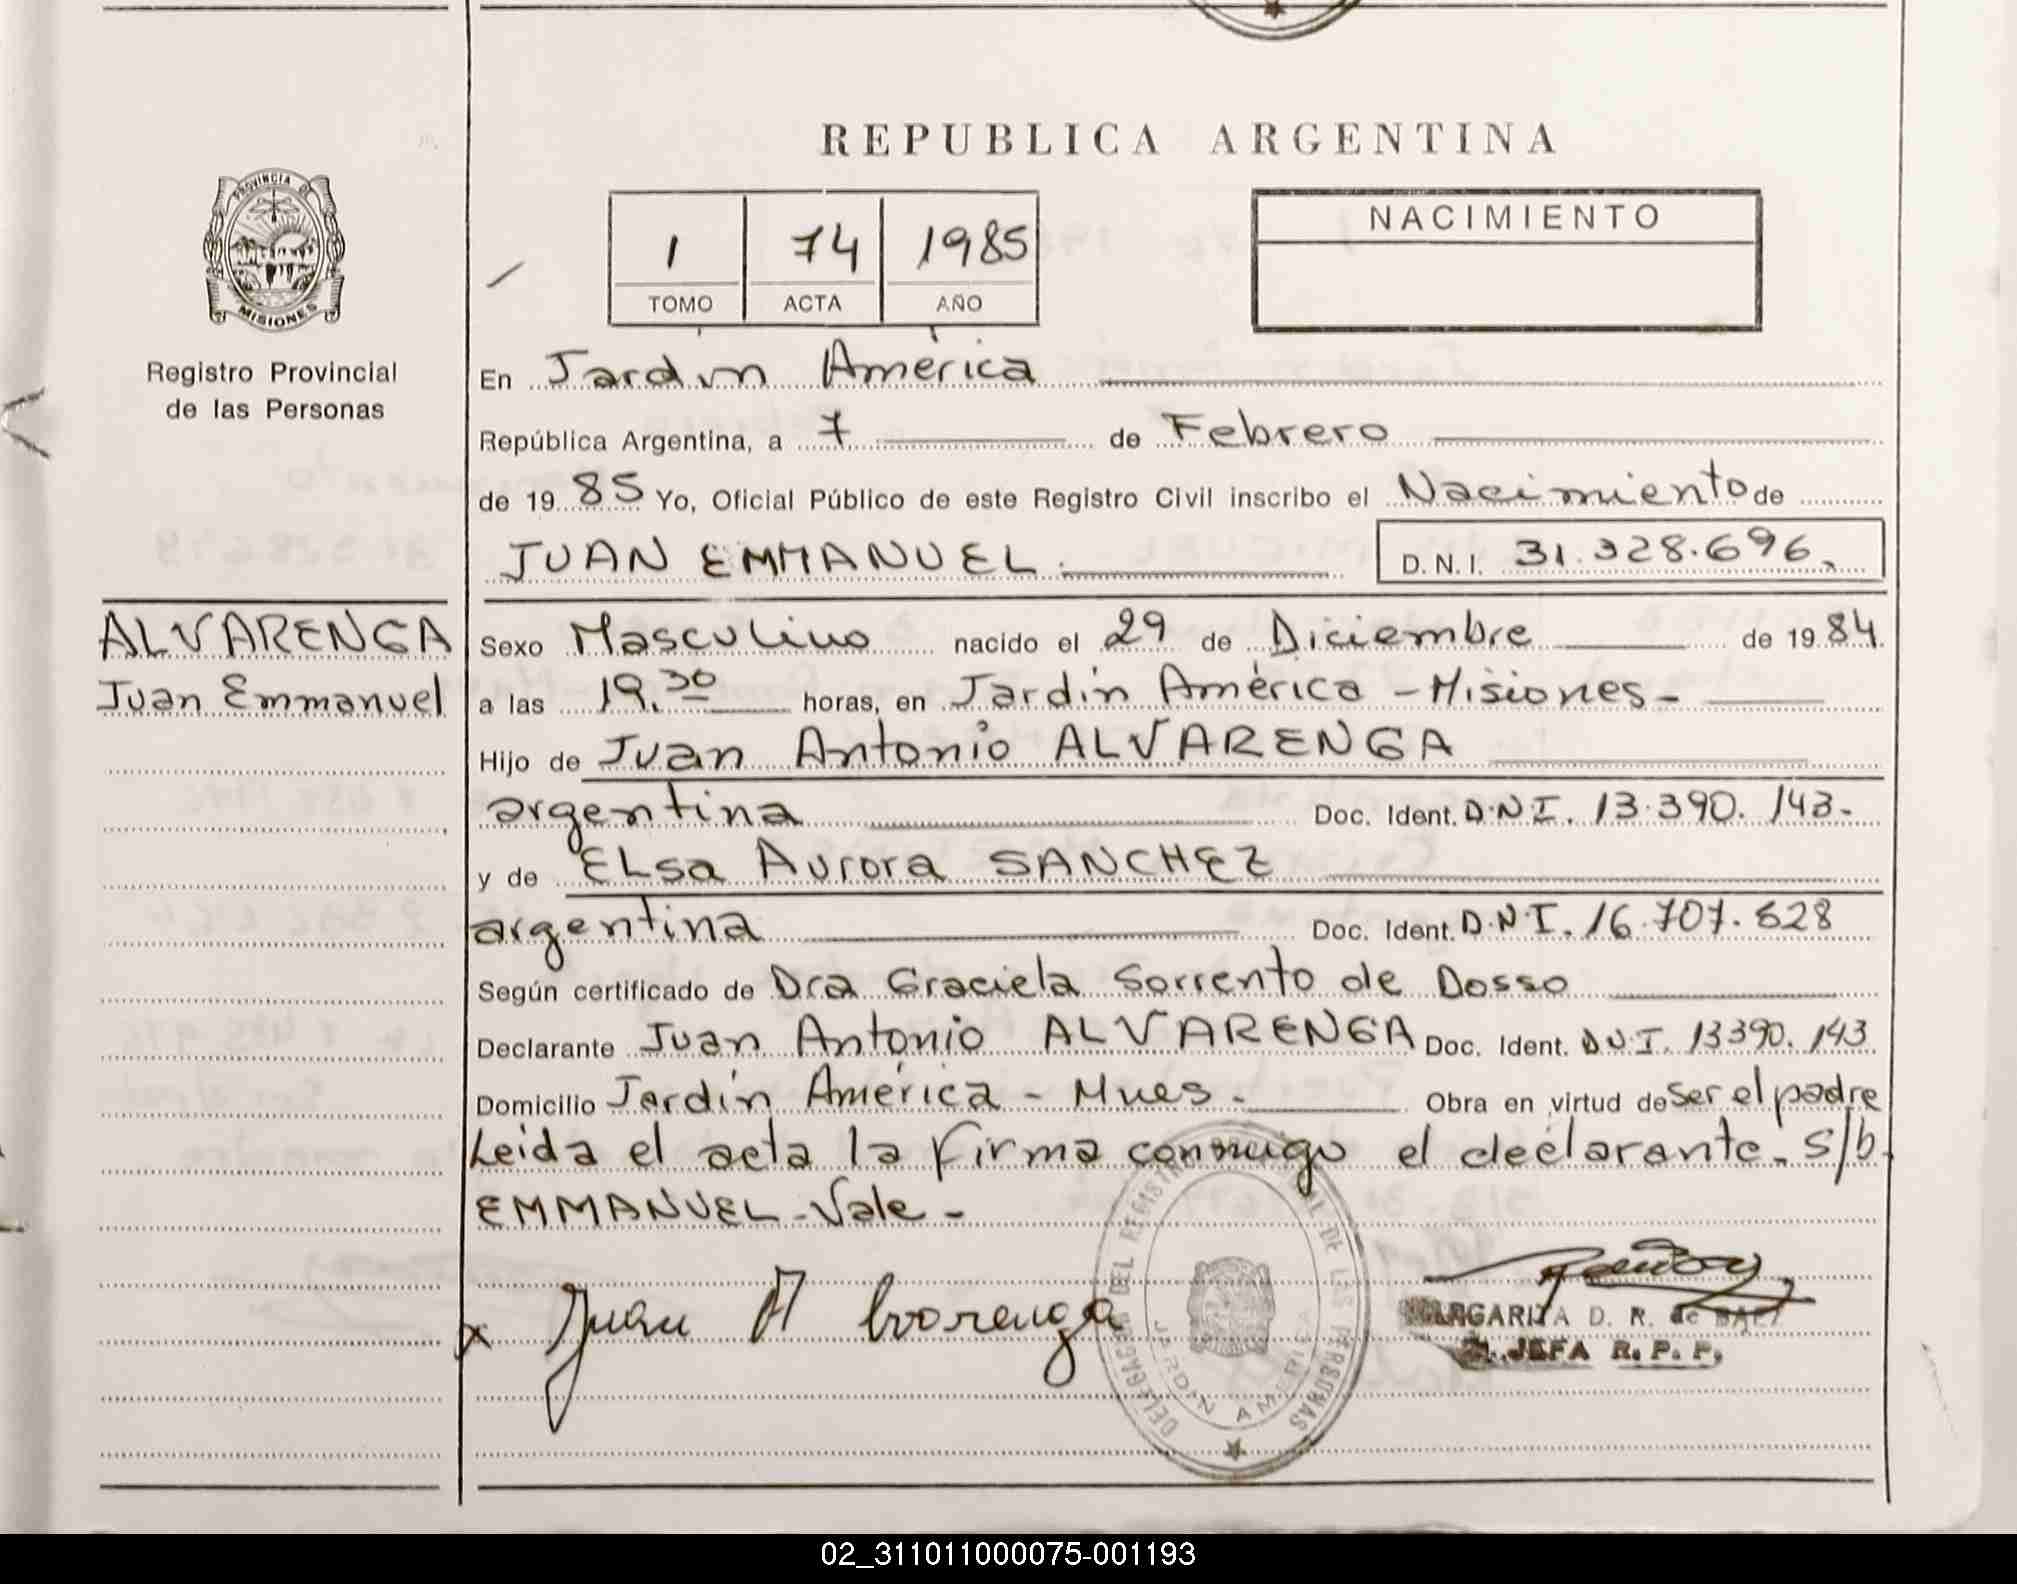 REPUBLICA ARGENTINA
PROVINCIA DE
MISIONES
Registro Provincial
de las Personas
1 74 1985
TOMO ACTA AÑO
NACIMIENTO
En Jardin América
República Argentina, a 7 de Febrero
de 1985 Yo, Oficial Público de este Registro Civil inscribo el Nacimiento de
JUAN EMMANUEL. D.N.I. 31.328.696.
ALVARENGA
Juan Emmanuel
Sexo Masculino nacido el 29 de Diciembre de 1984
a las 19.30 horas, en Jardín América - Misiones -
Hijo de Juan Antonio ALVARENGA
argentina Doc. Ident. D.N.I. 13.390.143-
y de ELsa Aurora SANCHEZ
argentina Doc. Ident. D.N.I. 16.707.628
Según certificado de Dra Graciela Sorrento de Dosso
Declarante Juan Antonio ALVARENGA Doc. Ident. D.N.I. 13390.143
Domicilio Jardín América - Mnes - Obra en virtud de Ser el padre
Leida el acta la firma conmigo el declarante. S/b.
EMMANUEL - Vale -
x Juan A
DELEGACION DEL REGISTRO PROVINCIAL DE LAS PERSONAS
JARDIN AMERICA
MARGARITA D. R. de BAEZ
JEFA R. P. P.
02_311011000075-001193